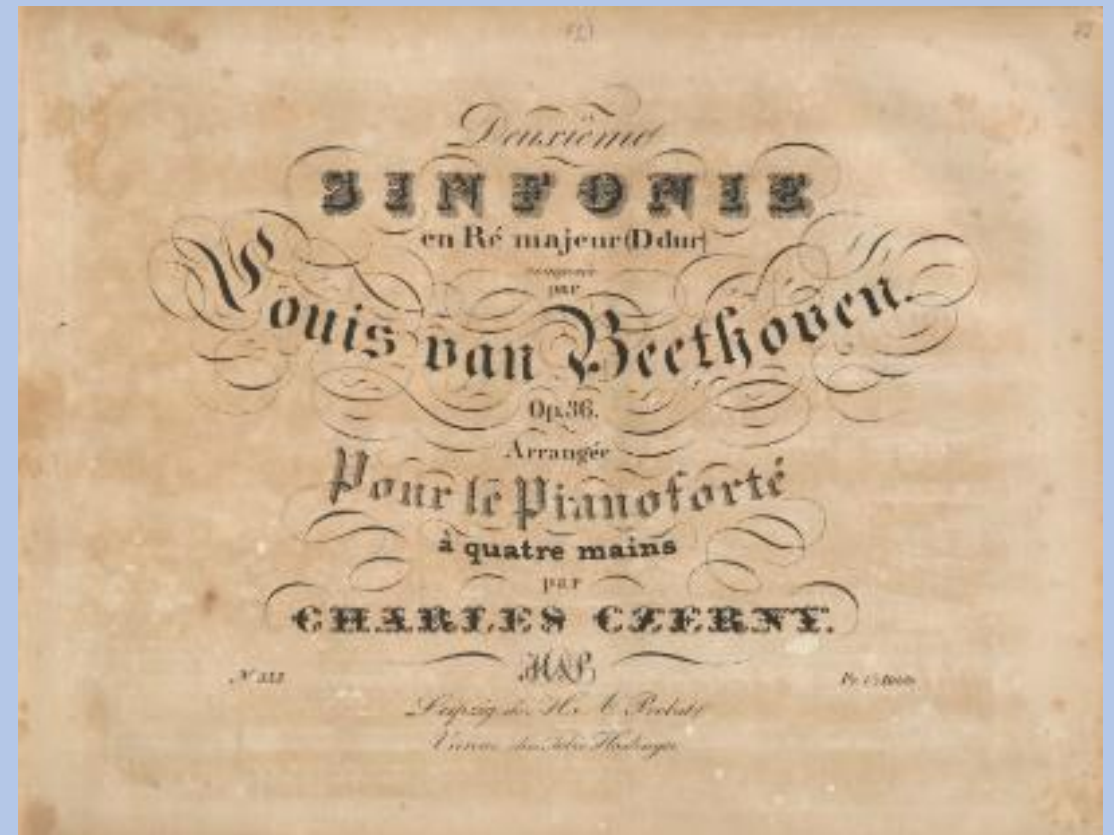 Deuxième
SINFONIE
en Ré majeur (D dur)
composée
par
Louis van Beethoven.
Op. 36.
Arrangée
Pour le Pianoforté
à quatre mains
par
CHARLES CZERNY.
Leipzig chez H. A. Probst
Vienne chez Tobie Haslinger